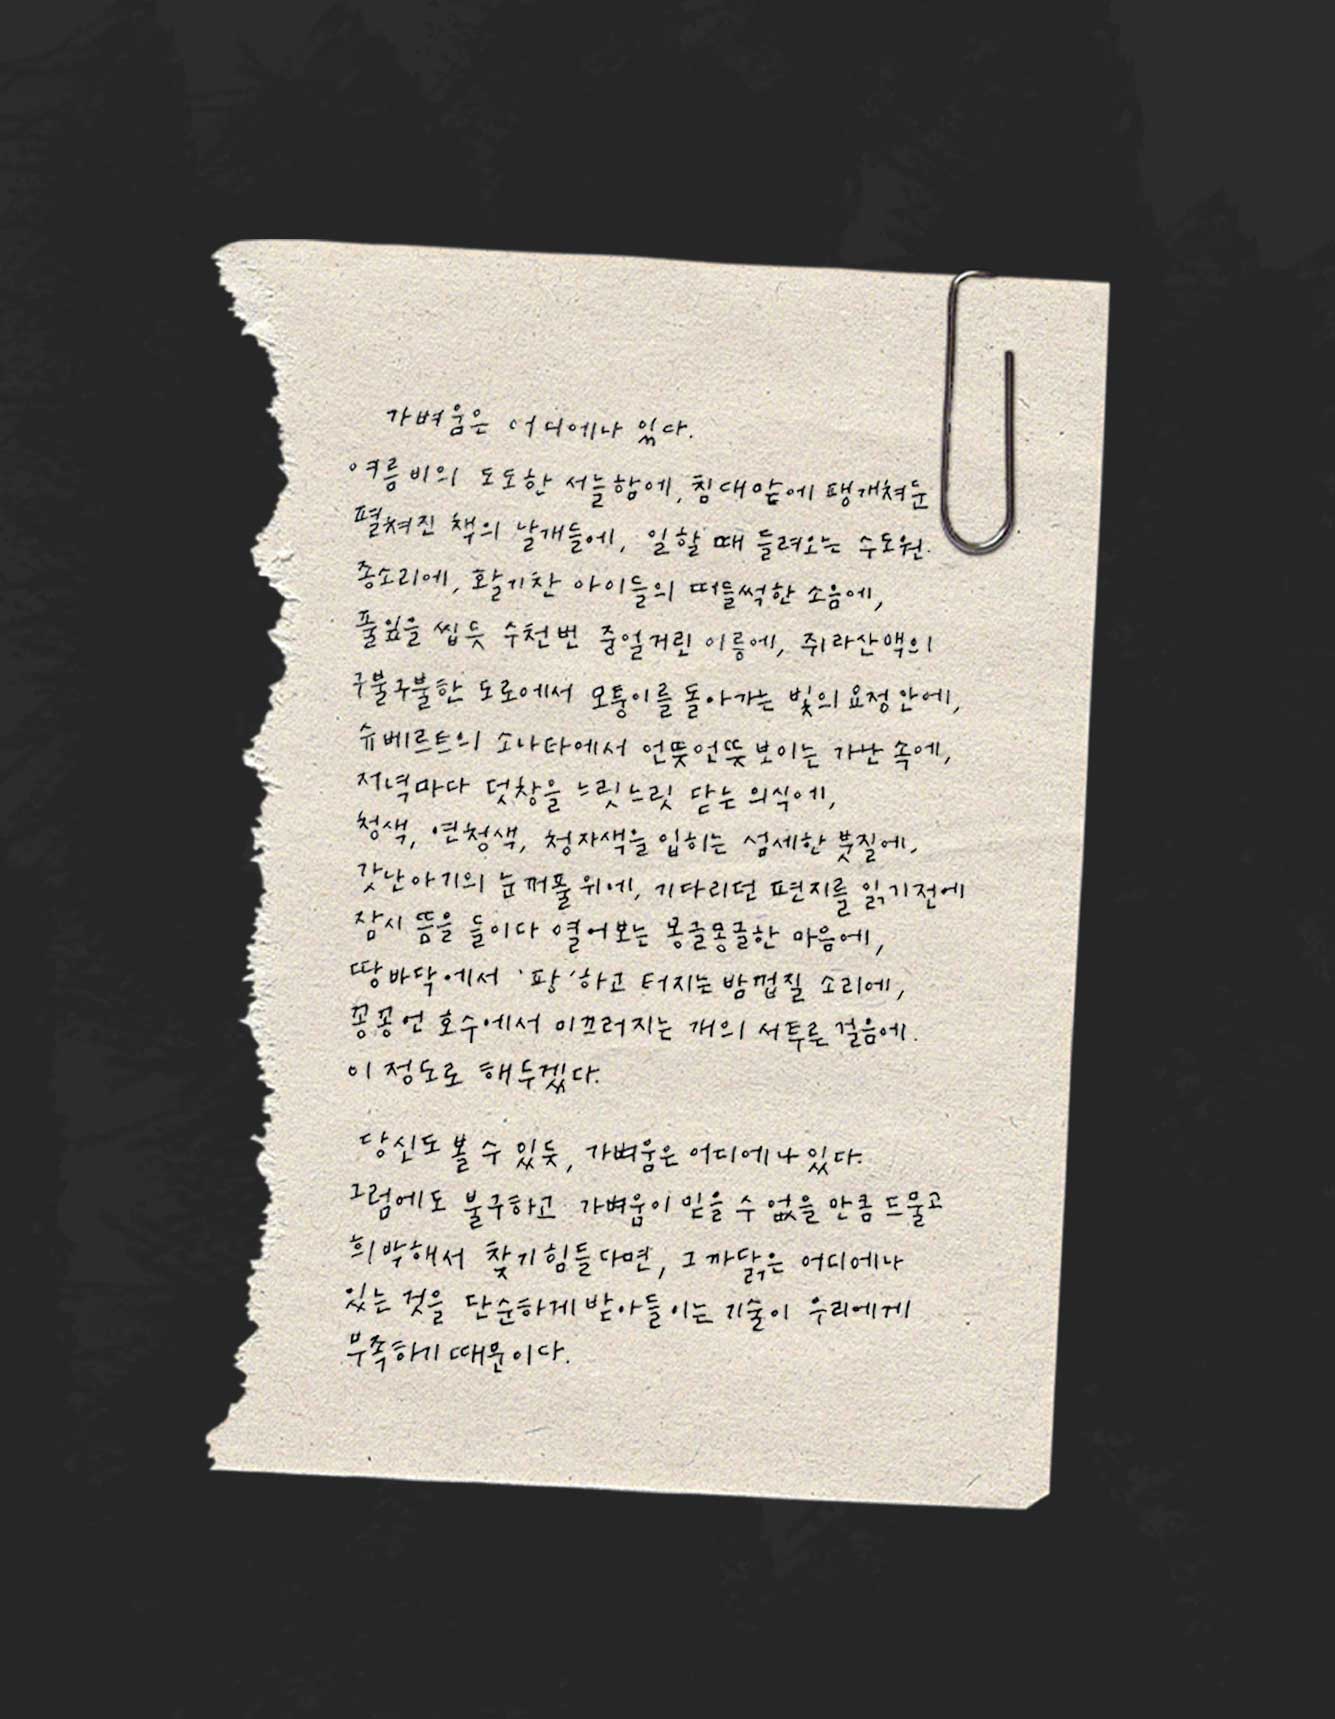 가벼움은 어디에나 있다.
여름비의 도도한 서늘함에, 침대맡에 팽개쳐둔
펼쳐진 책의 날개들에, 일할 때 들려오는 수도원
종소리에, 활기찬 아이들의 떠들썩한 소음에,
풀잎을 씹듯 수천번 중얼거린 이름에, 쥐라산맥의
구불구불한 도로에서 모퉁이를 돌아가는 빛의 요정 안에,
슈베르트의 소나타에서 언뜻언뜻 보이는 가난 속에,
저녁마다 덧창을 느릿느릿 닫는 의식에,
청색, 연청색, 청자색을 입히는 섬세한 붓질에,
갓난아기의 눈꺼풀 위에, 기다리던 편지를 읽기 전에
잠시 뜸을 들이다 열어보는 몽글몽글한 마음에,
땅바닥에서 '팡'하고 터지는 밤껍질 소리에,
꽁꽁 언 호수에서 미끄러지는 개의 서투른 걸음에.
이 정도로 해두겠다.
당신도 볼 수 있듯, 가벼움은 어디에나 있다.
그럼에도 불구하고 가벼움이 믿을 수 없을 만큼 드물고
희박해서 찾기 힘들다면, 그 까닭은 어디에나
있는 것을 단순하게 받아들이는 기술이 우리에게
부족하기 때문이다.